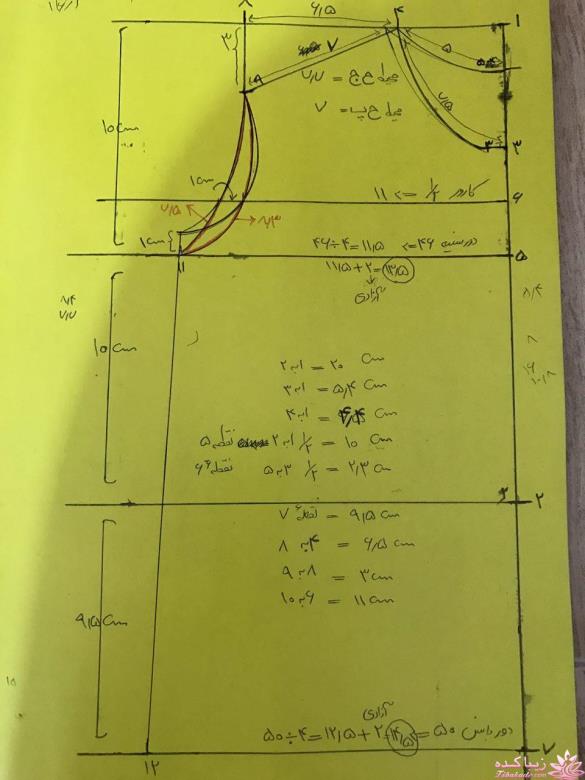 ۸
۶٫۵
۴
۱
۳
۷
۵
۹
میل ح ج = ۷٫۷
۷٫۵
۱۰ cm
میل ح پ = ۷
۳
۳
۱ cm
کارور ۱/۲ => ۱۱
۶
۷٫۵
۱ cm
دور سینه ۴۶ => ۴۶÷۴ = ۱۱٫۵
۵
۱۱
۱۱٫۵+۲=۱۳٫۵
آزادی
۸٫۴
۷٫۷
۸٫۴
۸
۱۰ cm
۱ به ۲ = ۲۰ cm
۱ به ۳ = ۵٫۴ cm
۱ به ۴ = cm
نقطه ۵ ۱/۲ ۱ به ۲ = ۱۰ cm
نقطه ۶ ۱/۲ ۳ به ۵ = ۲٫۳ cm
۳
۲
نقطه ۷ = ۹٫۵ cm
۴ به ۸ = ۶٫۵ cm
۸ به ۹ = ۳ cm
۶ به ۱۰ = ۱۱ cm
۹٫۵ cm
آزادی
دور باسن ۵۰ => ۵۰÷۴=۱۲٫۵+۲=۱۴٫۵
۷
۱۲
زیباکده
Zibakade.com